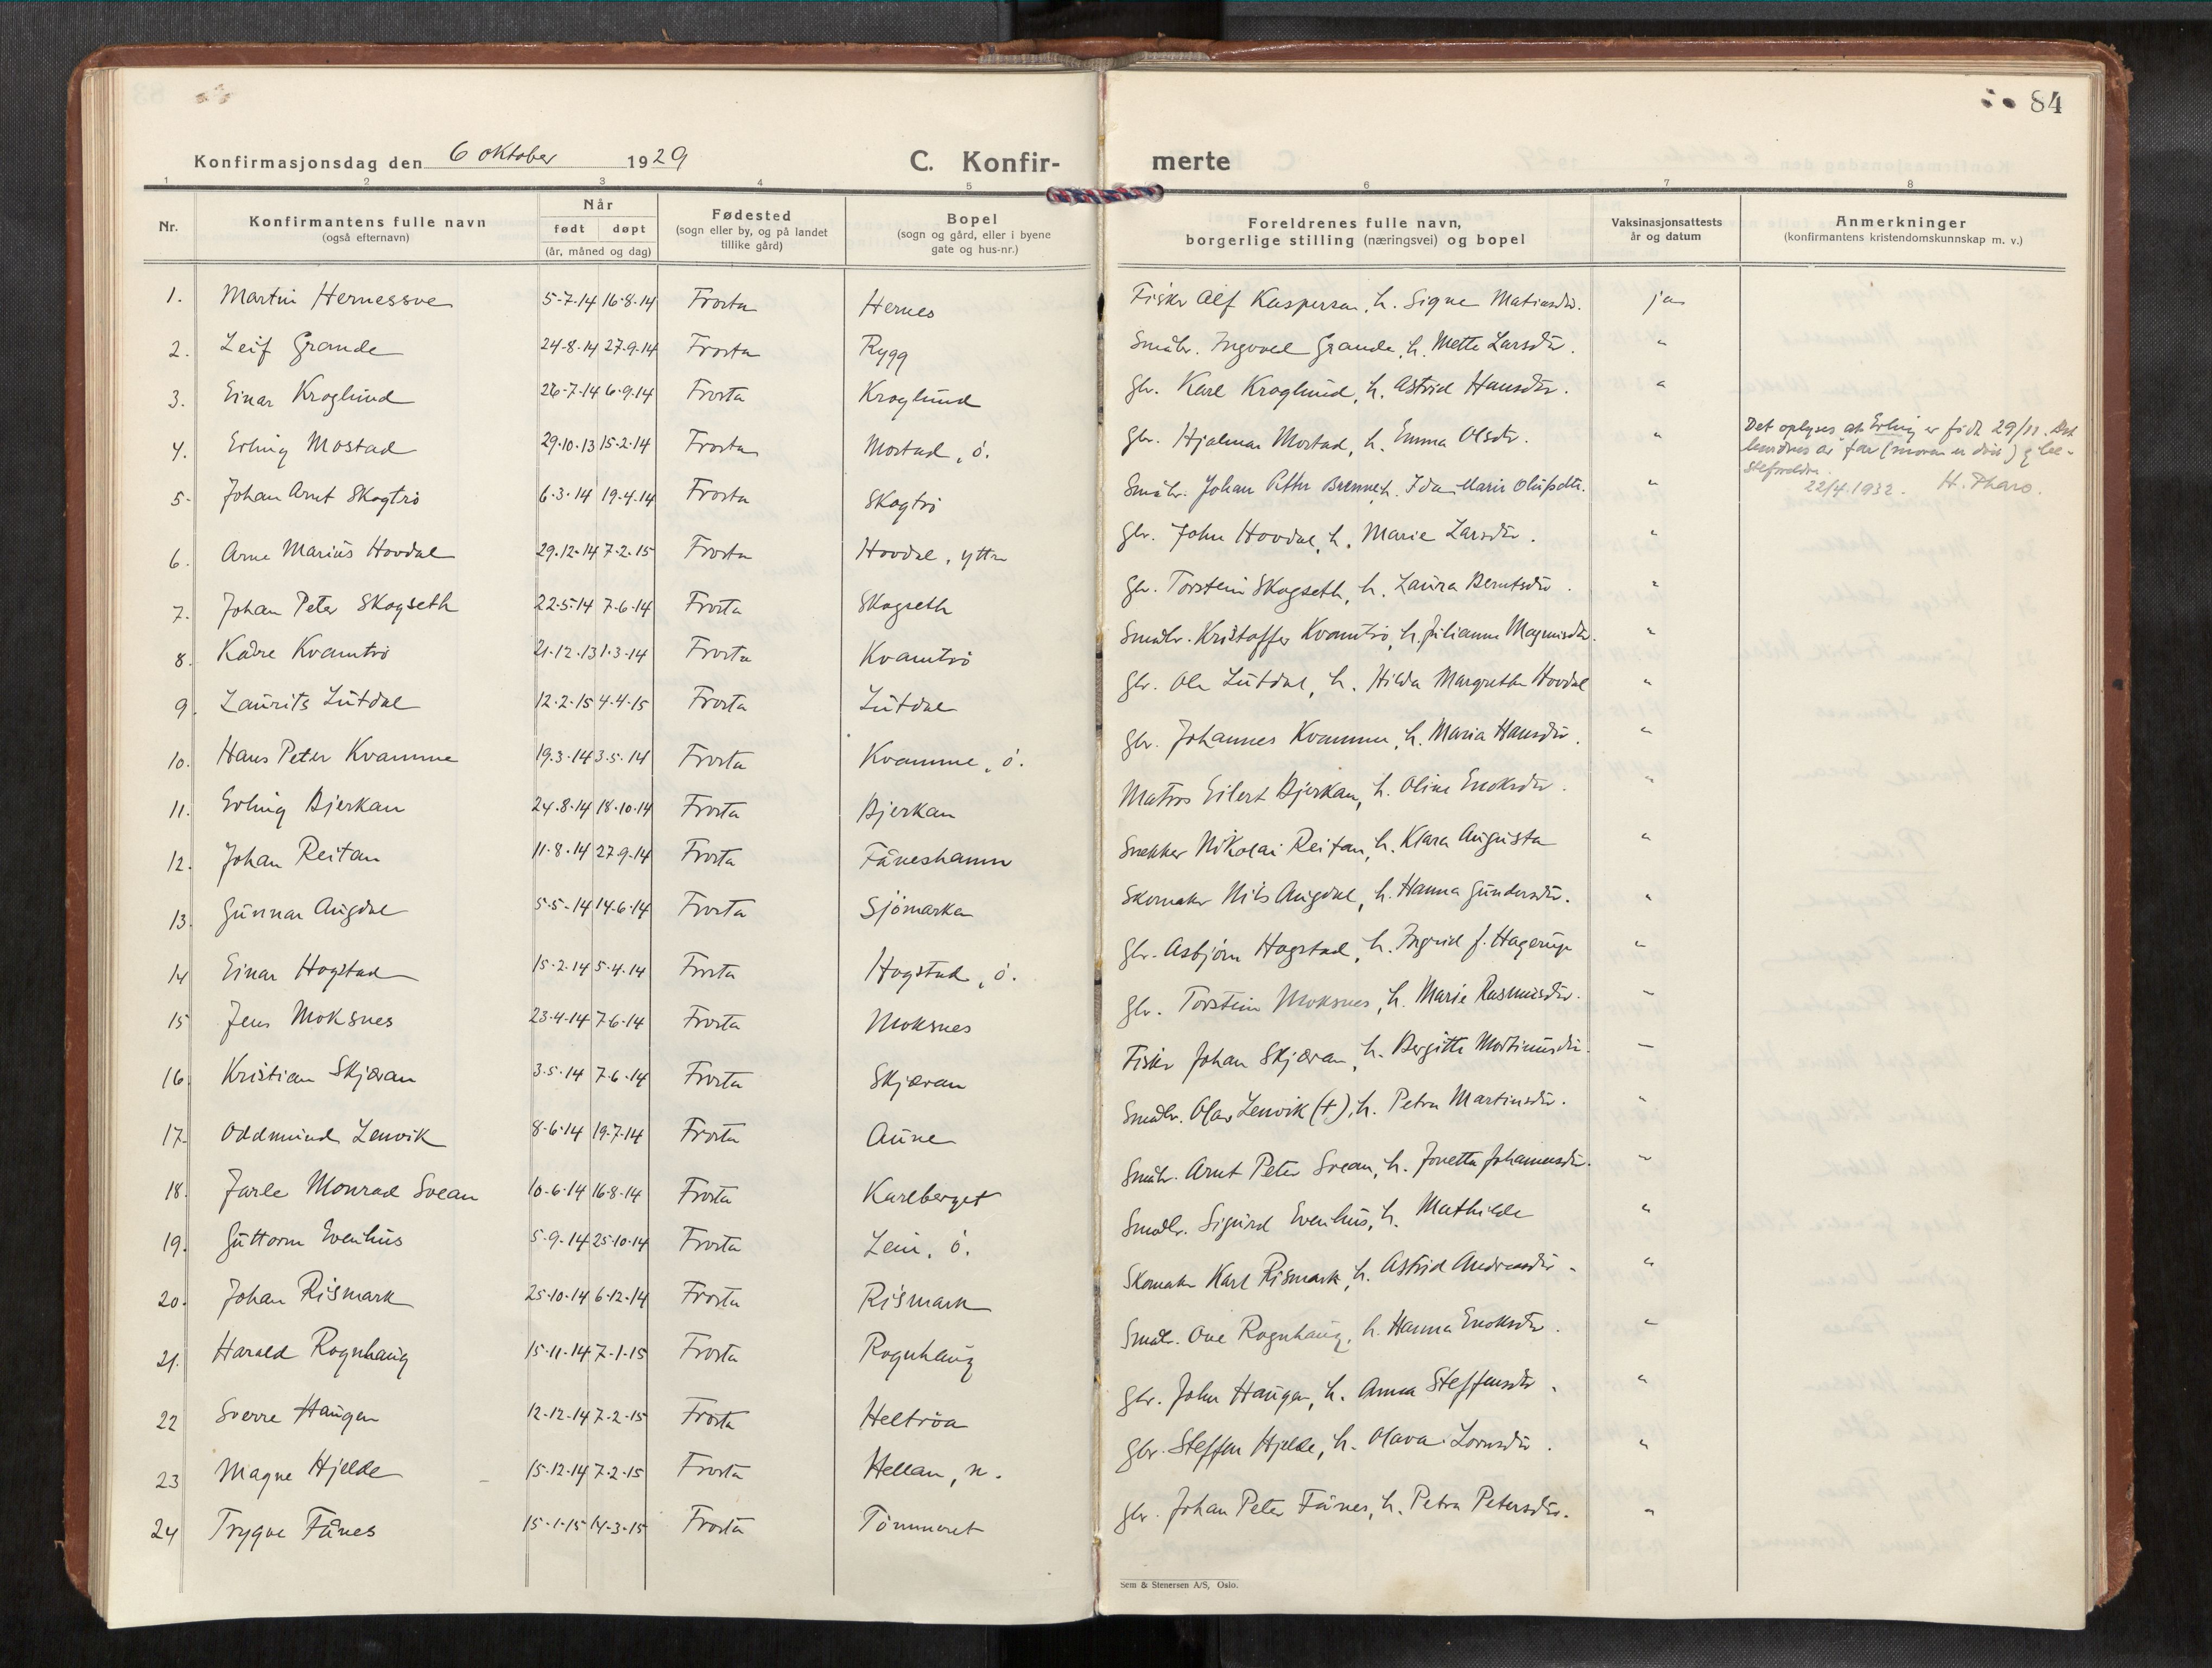 84
Konfirmasjonsdag den 6 oktober 1929 C. Konfir- merte
1 2 3 4 5 6 7 8
Nr. Konfirmantens fulle navn (også efternavn) Når født døpt (år, måned og dag) Fødested (sogn eller by, og på landet tillike gård) Bopel (sogn og gård, eller i byene gate og hus-nr.) Foreldrenes fulle navn, borgerlige stilling (næringsvei) og bopel Vaksinasjonsattests år og datum Anmerkninger (konfirmantens kristendomskunnskap m. v.)
1. Martin Hernessve 5-7-14 16-8-14 Frosta Hernes Fisker Alf Kaspersen, h. Signe Matiasdtr. ja
2. Leif Grande 24-8-14 27-9-14 Frosta Rygg Småbr. Ingvael Grande, h. Mette Larsdtr. "
3. Einar Kroglund 26-7-14 6-9-14 Frosta Kroglund Gbr. Karl Kroglund, h. Astrid Hansdtr. "
4. Erling Mostad 29-10-13 15-2-14 Frosta Mostad, ö. Gbr. Hjalmar Mostad, h. Emma Olsdtr. " Det oplyses at Erling er født 29/11. Det
av far (moren er død) og be-
22/4.1932. H. Tharo.
5. Johan Arnt Skogtrö 6-3-14 19-4-14 Frosta Skogtrö Småbr. Johan Petter Brenne, h. Ida Marie Olufsdtr. "
6. Arne Marius Hovdal 29-12-14 7-2-15 Frosta Hovdal, yttre Gbr. John Hovdal, h. Marie Larsdtr. "
7. Johan Peter Skogseth 22-5-14 7-6-14 Frosta Skogseth Gbr. Torstein Skogseth, h. Laura Berntsdtr. "
8. Kåre Kvamtrö 21-12-13 1-3-14 Frosta Kvamtrö Småbr. Kristoffer Kvamtrö, h. Julianne Magnusdtr. "
9. Laurits Lutdal 12-2-15 4-4-15 Frosta Lutdal Gbr. Ole Lutdal, h. Hilda Margrethe Hovdal "
10. Hans Peter Kvamme 19-3-14 3-5-14 Frosta Kvamme, ö. Gbr. Johannes Kvamme, h. Maria Hansdtr. "
11. Erling Bjerkan 24-8-14 18-10-14 Frosta Bjerkan Matros Eilert Bjerkan, h. Oline Enoksdtr. "
12. Johan Reitan 11-8-14 27-9-14 Frosta Fåneshamn Snekker Nikolai Reitan, h. Klara Augusta "
13. Gunnar Augdal 5-5-14 14-6-14 Frosta Sjömarka Skomaker Nils Augdal, h. Hanna Gundersdtr. "
14 Einar Hogstad 15-2-14 5-4-14 Frosta Hogstad, ö. Gbr. Asbjörn Hogstad, h. Ingrid f. Hagerup "
15 Jens Moksnes 23-4-14 7-6-14 Frosta Moksnes Gbr. Torstein Moksnes, h. Marie Rasmusdtr. "
16. Kristian Skjæran 3-5-14 7-6-14 Frosta Skjæran Fisker Johan Skjæran, h. Bergitte Mortinusdtr. "
17. Oddmund Lenvik 8-6-14 19-7-14 Frosta Aune Småbr. Olav Lenvik (†), h. Petra Martinsdtr. "
18. Jarle Monrad Svean 10-6-14 16-8-14 Frosta Karlberget Småbr. Arnt Peter Svean, h. Jonetta Johannesdtr. "
19. Guttorm Evenhus 5-9-14 25-10-14 Frosta Lein, ö. Småbr. Sigurd Evenhus, h. Mathilde "
20. Johan Rismark 25-10-14 6-12-14 Frosta Rismark Skomaker Karl Rismark, h. Astrid Andreasdtr. "
21. Harald Rognhaug 15-11-14 7-1-15 Frosta Rognhaug Småbr. Ove Rognhaug, h. Hanna Enoksdtr. "
22 Sverre Haugen 12-12-14 7-2-15 Frosta Heltröa Gbr. John Haugen, h. Anna Steffensdtr. "
23 Magne Hjelde 15-12-14 7-2-15 Frosta Hellan, n. Gbr. Steffen Hjelde, h. Olava Lornsdtr. "
24 Trygve Fånes 15-1-15 14-3-15 Frosta Tömmeret Gbr. Johan Peter Fånes, h. Petra Petersdtr. "
Sem & Stenersen A/S, Oslo.